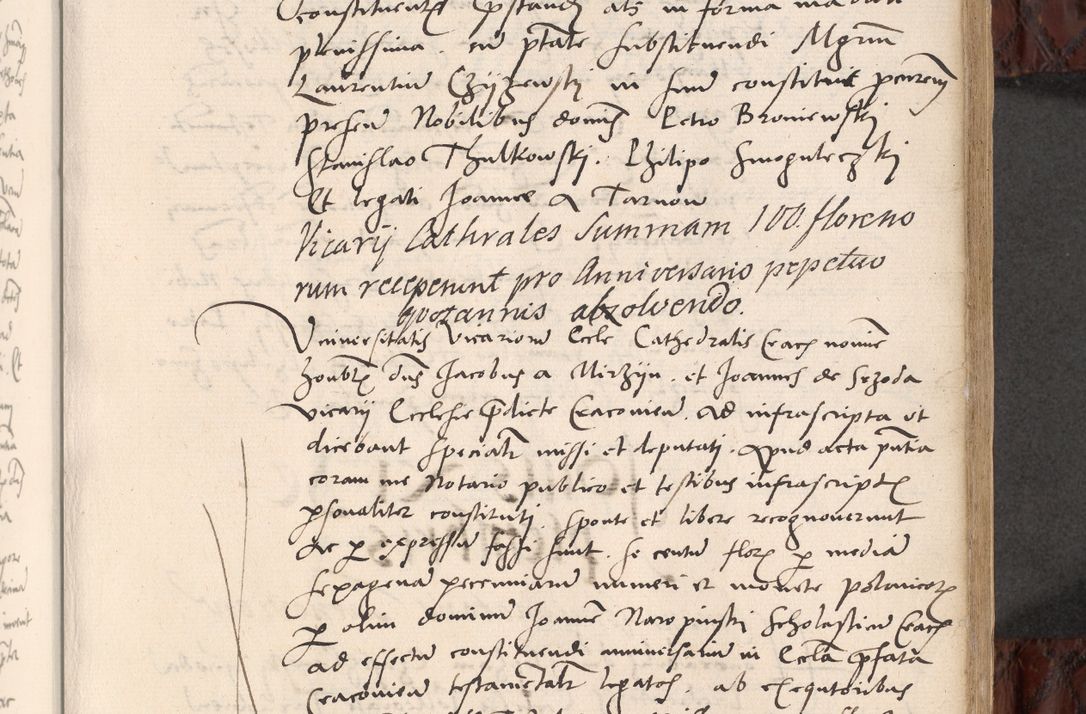 constituentes pstandi als in forma
plenissima. cu ptate substituendi Mgrum
Laurentiu Czyzewskj in sim constituit
presen Nobilibus domis Petro Broniewskj
Stanislao Thulkowskj. Philipo Smoguleczkj
Et legati Joannes a Tarnow
Vicarij Cathrales Summam 100. floreno
rum receperunt pro Anniversario pepetuo
quotannis abzolvendo.
Vniuersitatis Vicariorum Eccle Cathedralis Cracz nomine
dns Jacobus a et Joannes de Srzoda
vicarij Ecclesie pdicte Cracovien. ad infrascripta ut
dicebant specialr missi et deputati. Apud acta pntia
coram me Notario publico et testibus infrascriptis
psonaliter constituti. sponte et libere recognouerunt
Ac p expressum fassi sunt. se centu flor p mediam
sexagenam pecuniarum numeri et monete polonicalis
p olim dominum Joannem Naropinski Scholasticum Cracz
ad effectum constituendi anniuersarium in Ecclia pfata
Cracovien testamentalr legatos. ab exequtoribus